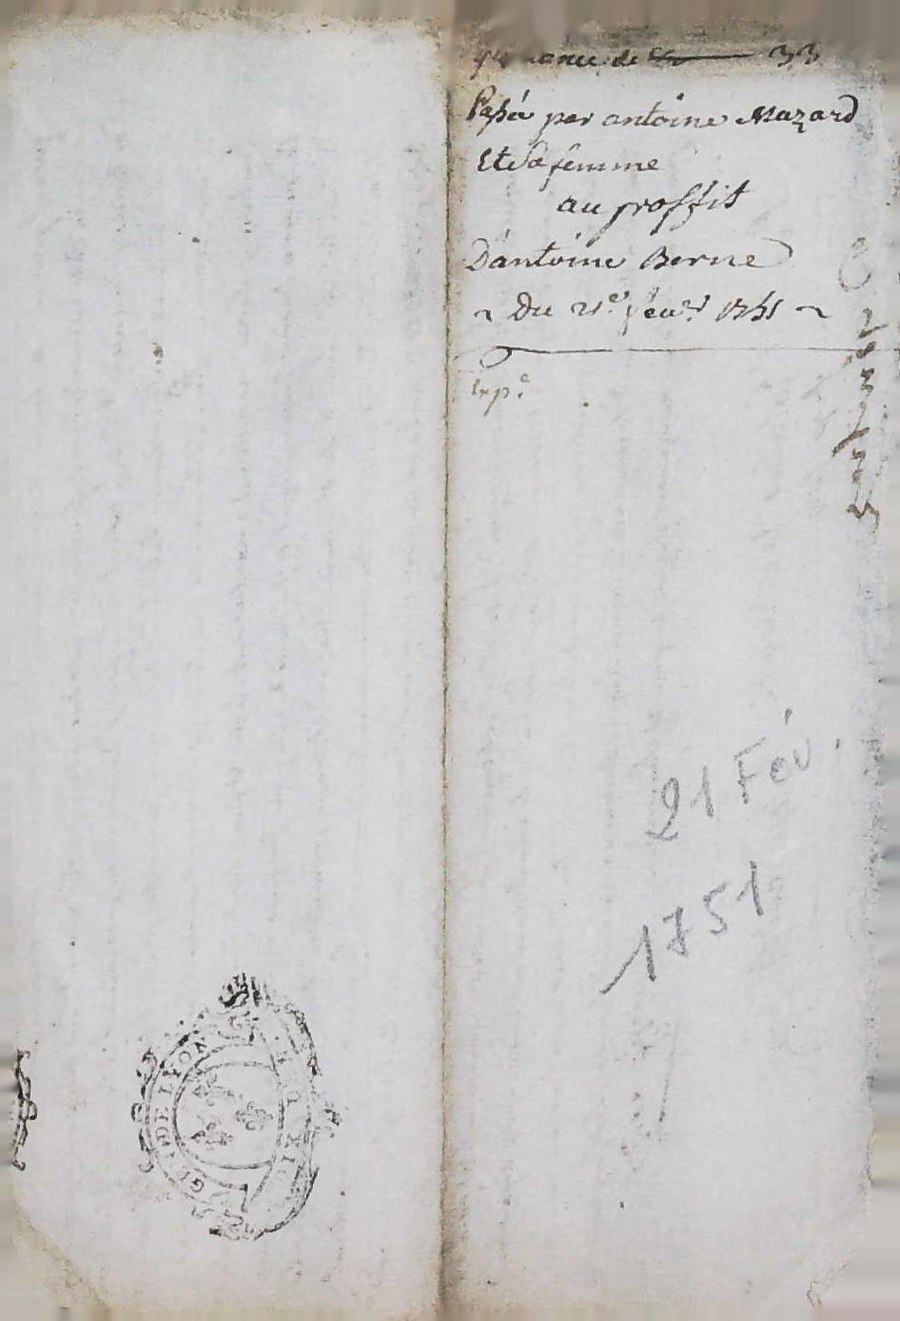 de 33
Passée par antoine Mazard
Et Sa femme
au proffit
D'antoine Berne
Du 21e feur 1751
Exp.e
21 Fév.
1751
GEN DE LYON